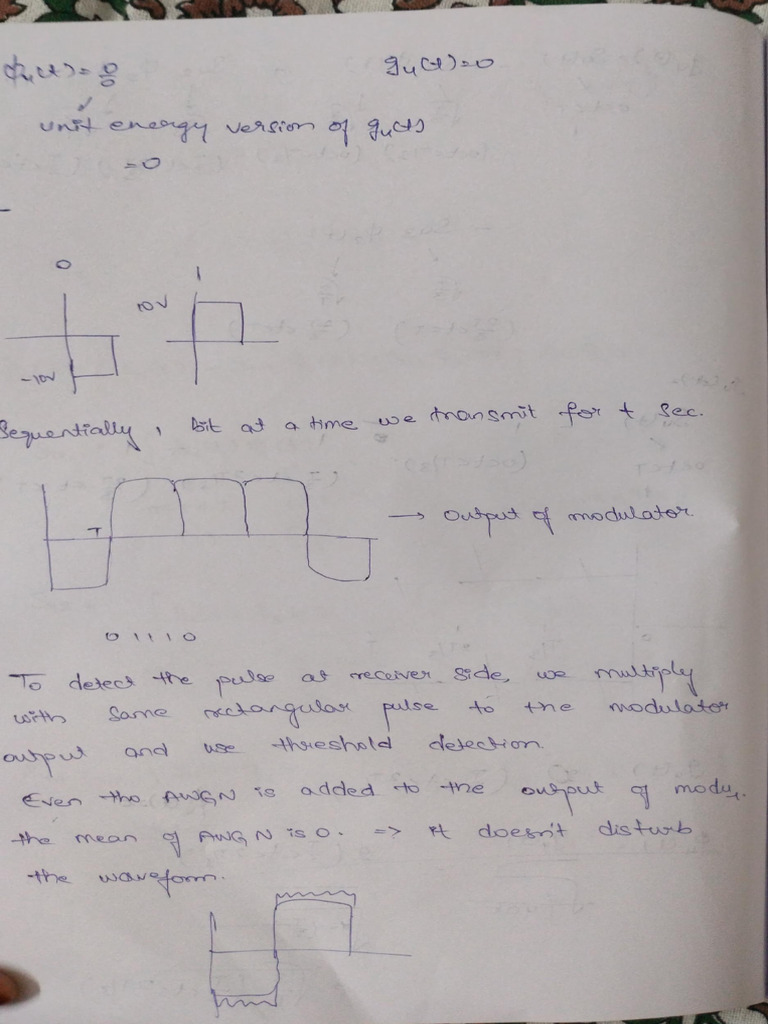 ϕ₄(t) = 0/0 g₄(t) = 0
unit energy version of g₄(t)
= 0
0 1
10V
-10V
Sequentially, bit at a time we transmit for t sec.
T
→ output of modulator
0 1 1 1 0
To detect the pulse at receiver side, we multiply
with same rectangular pulse to the modulator
output and use threshold detection.
Even tho AWGN is added to the output of modu.
the mean of AWGN is 0. => It doesn't disturb
the waveform.